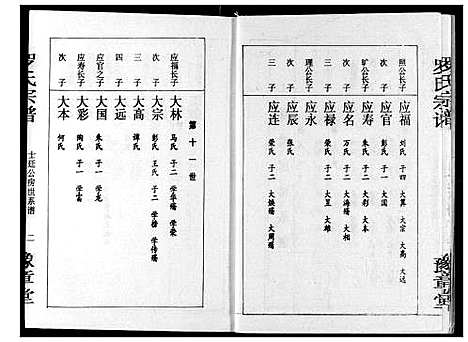 罗氏宗谱
豫章堂
照公长子 应福 刘氏 子四 大算 大宗 大高 大远
次子 应官 彭氏 子一 大国
旷公长子 应寿 朱氏 子二 大彩 大本
次子 应名 万氏 子二 大海殇 大相
三子 应禄 荣氏 子二 大里 大雄
理公长子 应永
次子 应辰 张氏
三子 应连 荣氏 子二 大焕殇 大周殇
第十一世
应福长子 大林 马氏 子二 学华殇 学荣
次子 大宗 彭氏 王氏 子二 学拾 学传殇
三子 大高 谭氏
四子 大远
应官之子 大国 朱氏 子一 学龙
应寿长子 大彩 陶氏 子一 学富
次子 大本 何氏
罗氏宗谱
士廷公房世系谱
二
豫章堂